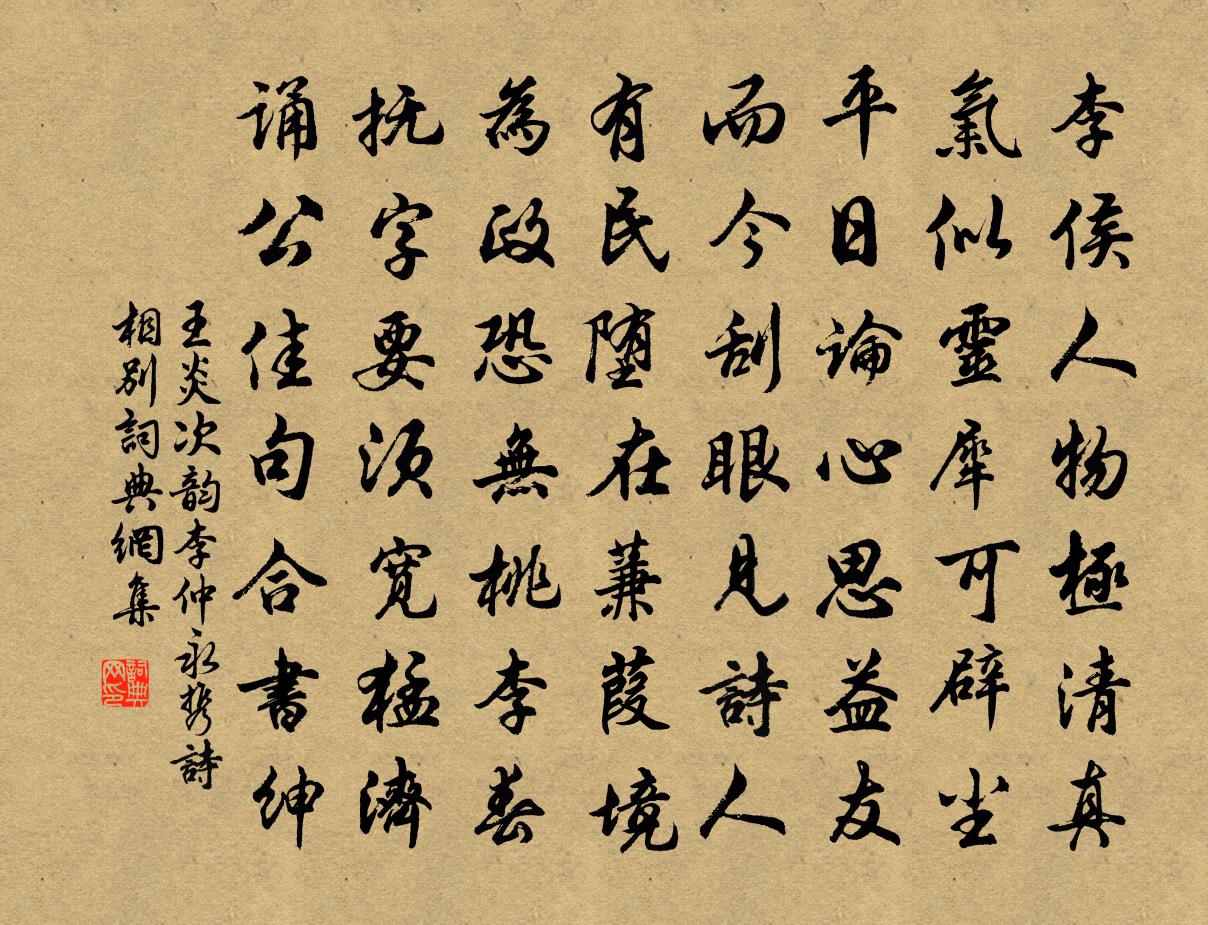 李侯人物極清真
氣似靈犀可辟尘
平日論心思益友
而今刮眼見詩人
有民堕在蒹葭境
為政恐無桃李春
抚字要须寛猛濟
诵公佳句合書紳
王炎次韵李仲永携詩
相别詞典網集
詞典网印